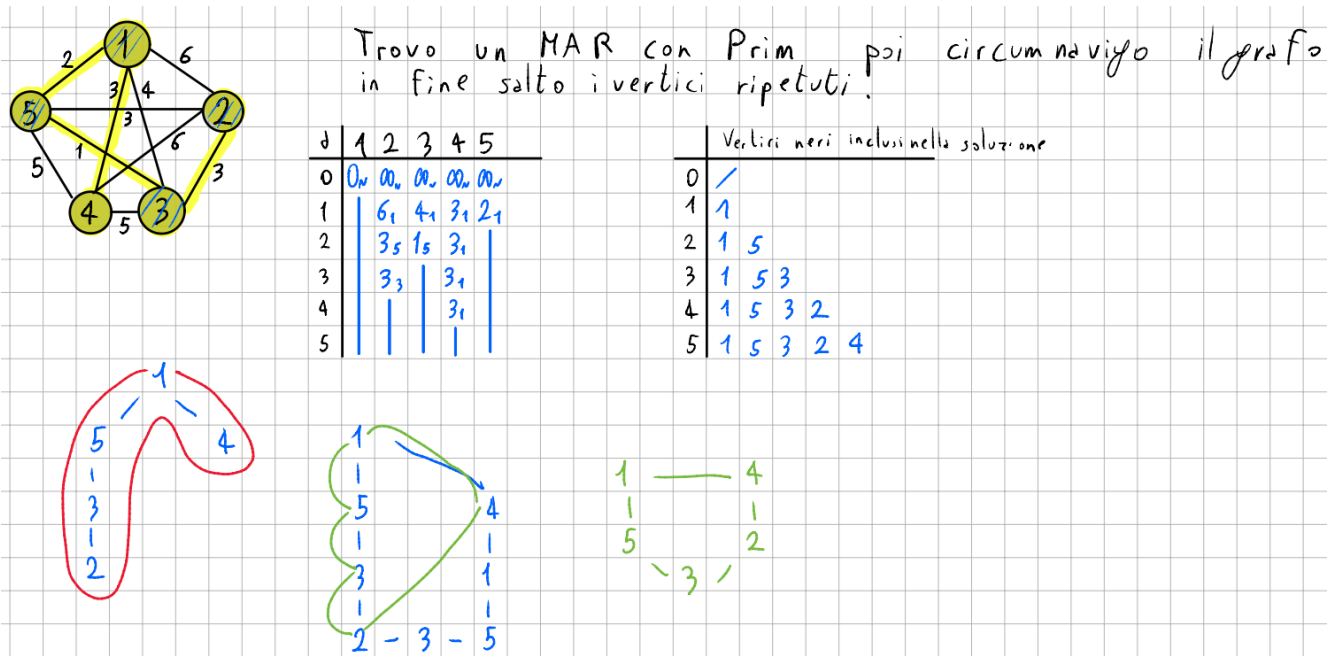 Trovo un MAR con Prim poi circumnavigo il grafo
in fine salto i vertici ripetuti.
1
2 6
3 4
5 3 2
5 1 6 3
4 5 3
d 1 2 3 4 5
0 0N ∞N ∞N ∞N ∞N
1 6₁ 4₁ 3₁ 2₁
2 3₅ 1₅ 3₁
3 3₃ 3₁
4 3₁
5
Vertici neri inclusi nella soluzione
0 /
1 1
2 1 5
3 1 5 3
4 1 5 3 2
5 1 5 3 2 4
1
5 4
3
2
1
5 4
3 1
2 - 3 - 5
1 — 4
5 2
3